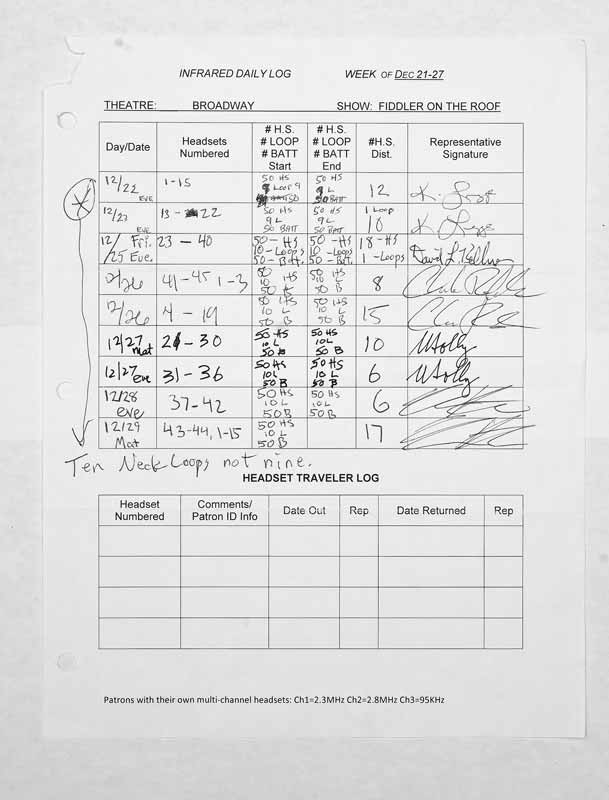 INFRARED DAILY LOG WEEK OF DEC 21-27
THEATRE: BROADWAY SHOW: FIDDLER ON THE ROOF
Day/Date
Headsets
Numbered
# H.S.
# LOOP
# BATT
Start
# H.S.
# LOOP
# BATT
End
#H.S.
Dist.
Representative
Signature
12/22
EVE
1-15
50 HS
Loop 9
50
50 HS
9 L
50 BATT
12
12/23
EVE
13 - 22
50 HS
9 L
50 BATT
50 HS
9 L
50 BATT
1 Loop
10
12/ Fri.
25 Eve.
23 - 40
50 - HS
10 - Loops
50 - Batt.
50 - HS
10 - Loops
50 - Batt.
18 - HS
1 - Loops
12/26
41-45 1-3
50 HS
10 L
50 B
50 HS
10 L
50 B
8
12/26
4 - 19
50 HS
10 L
50 B
50 HS
10 L
50 B
15
12/27
Mat
21 - 30
50 HS
10 L
50 B
50 HS
10 L
50 B
10
12/27
eve
31 - 36
50 HS
10 L
50 B
50 HS
10 L
50 B
6
12/28
eve
37-42
50 HS
10 L
50 B
50 HS
10 L
50 B
6
12/29
Mat
43-44, 1-15
50 HS
10 L
50 B
17
Ten Neck Loops not nine.
HEADSET TRAVELER LOG
Headset
Numbered
Comments/
Patron ID Info
Date Out
Rep
Date Returned
Rep
Patrons with their own multi-channel headsets: Ch1=2.3MHz Ch2=2.8MHz Ch3=95KHz